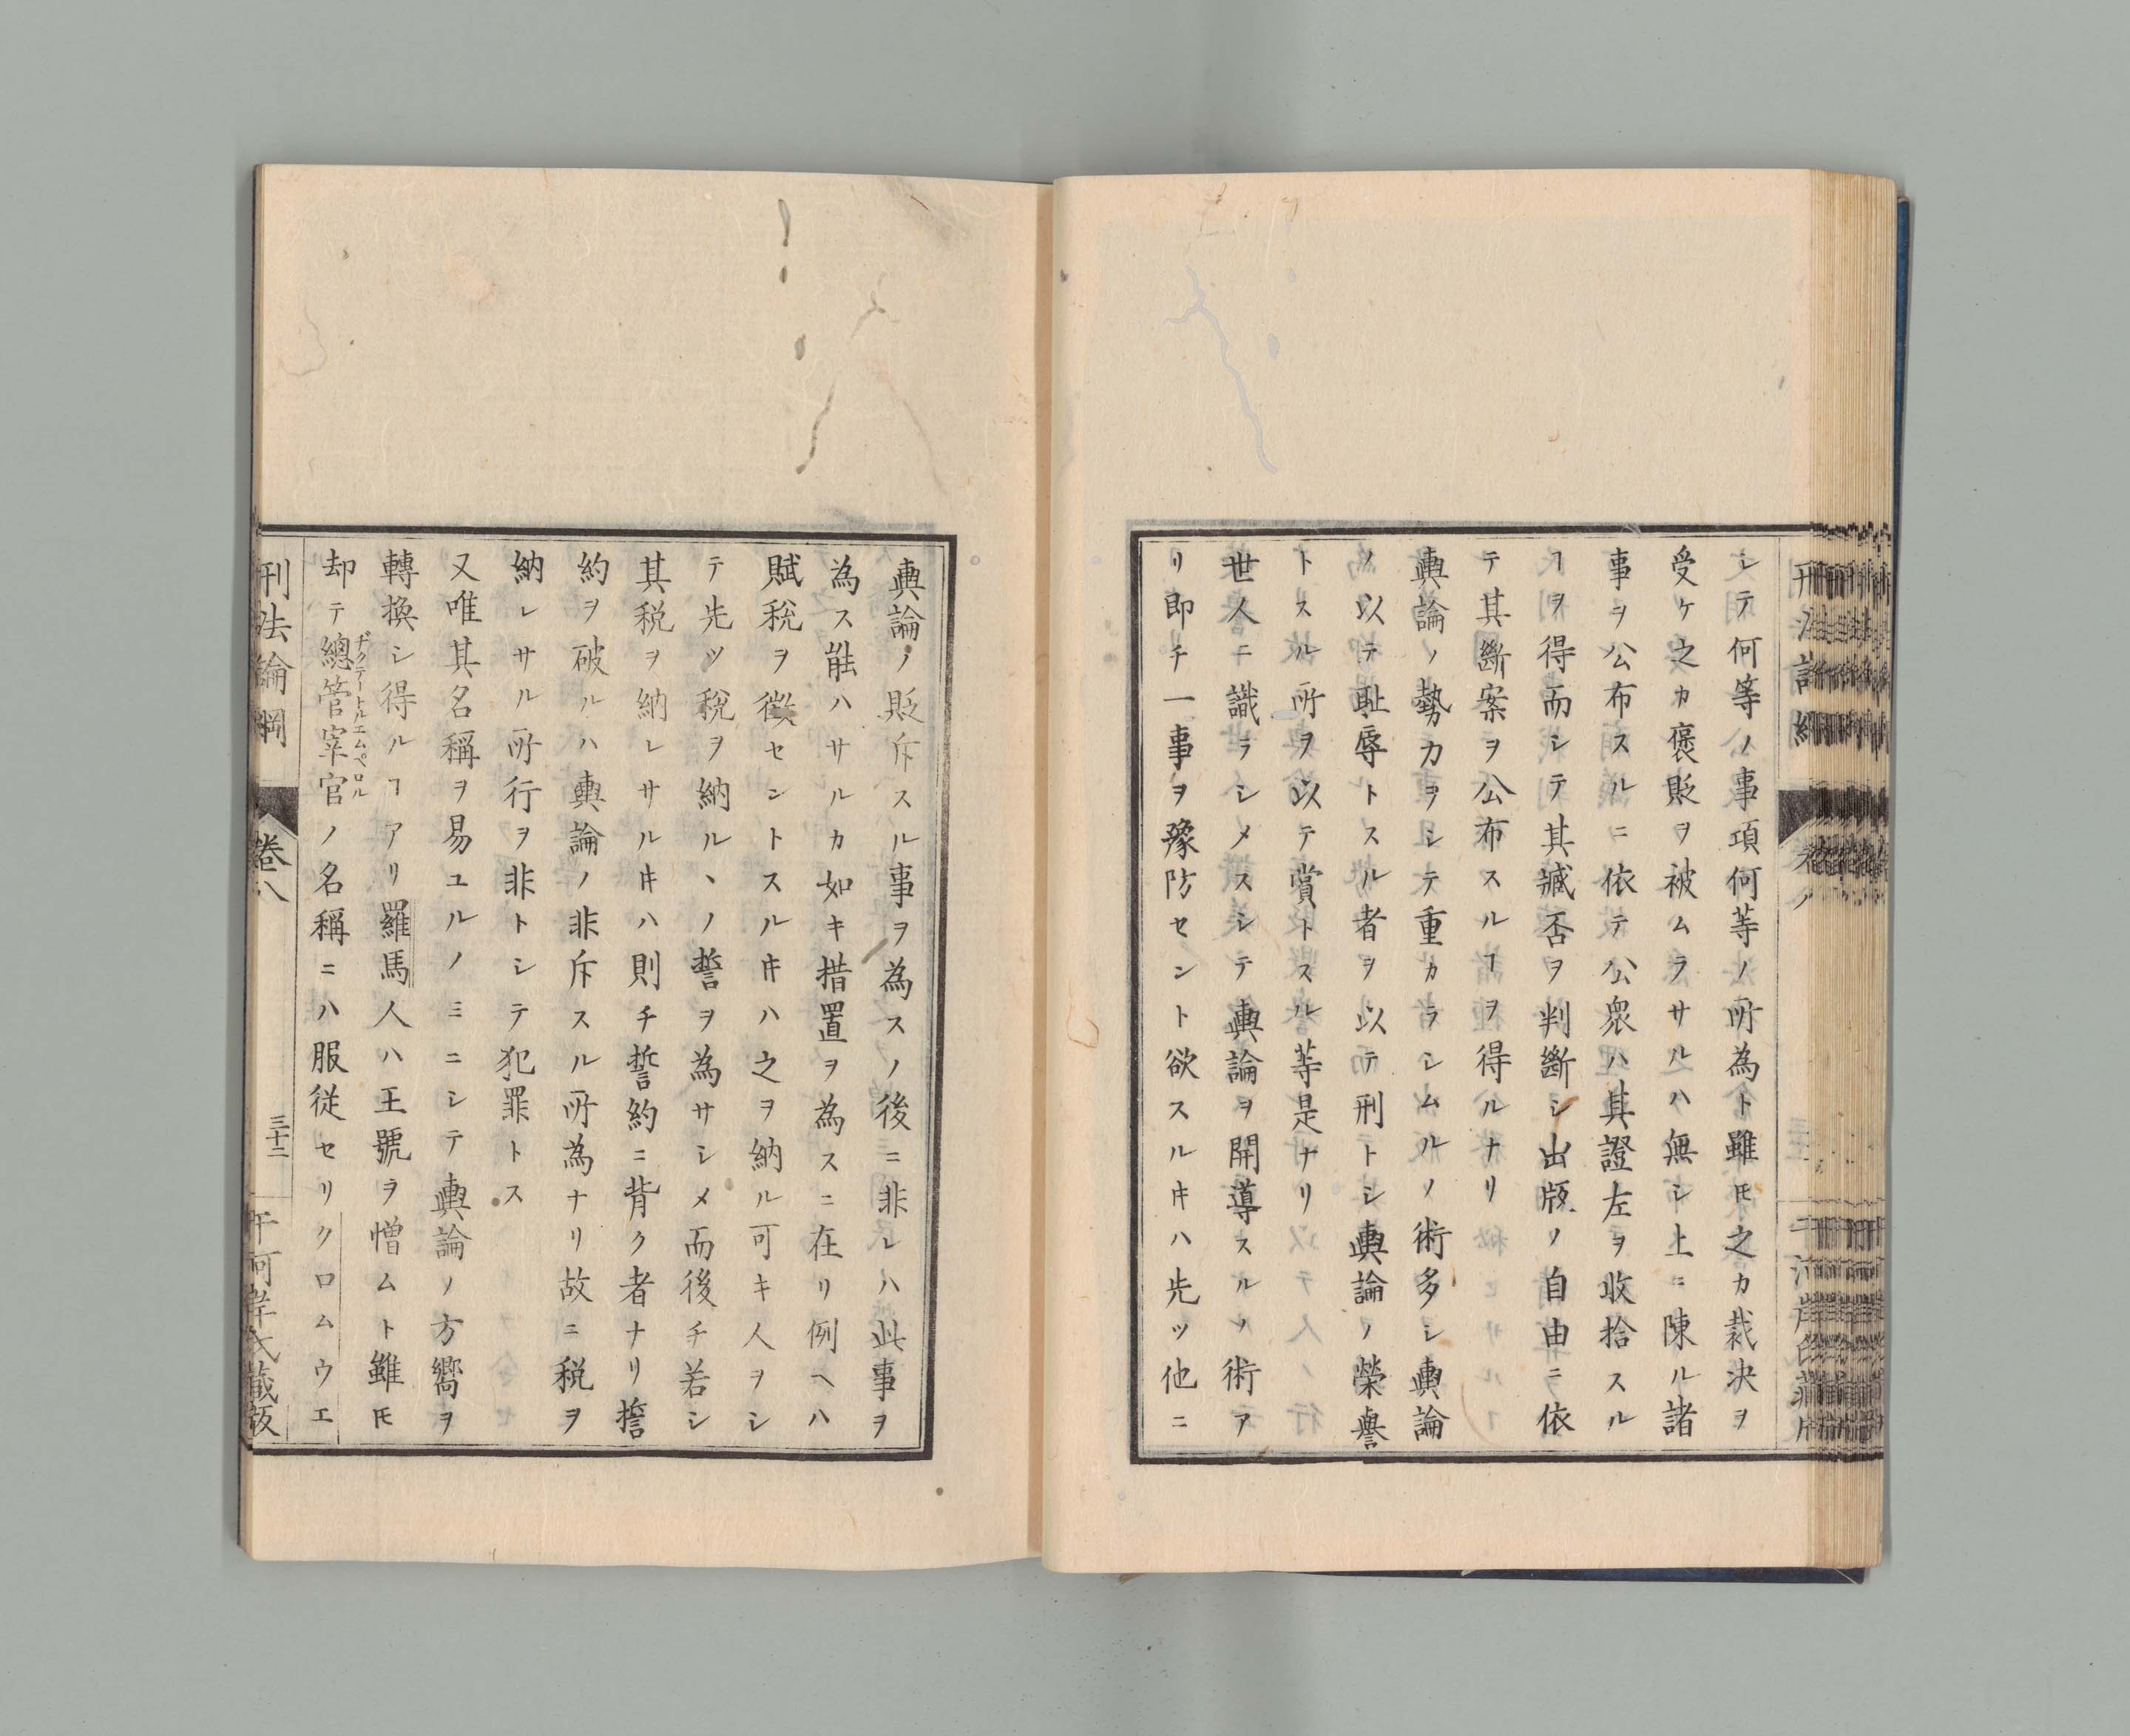 シテ何等ノ事項何等ノ所為ト雖𪜈之カ裁決ヲ
受ケ之カ襃貶ヲ被ムラサルハ無シ上ニ陳ル諸
事ヲ公布スルニ依テ公衆ハ其證左ヲ收拾スル
ヿヲ得而シテ其臧否ヲ判斷シ出版ノ自由ニ依
テ其斷案ヲ公布スルヿヲ得ルナリ
輿論ノ勢力ヲシテ重カラシムルノ術多シ輿論
ノ以テ耻辱トスル者ヲ以テ刑トシ輿論ノ榮譽
トスル所ヲ以テ賞トスル等是ナリ
世人ニ識ラシメスシテ輿論ヲ開導スルノ術ア
リ即チ一事ヲ豫防セント欲スル㪽ハ先ツ他ニ
輿論ノ貶斥スル事ヲ為スノ後ニ非レハ此事ヲ
為ス能ハサルカ如キ措置ヲ為スニ在リ例ヘハ
賦稅ヲ徵セントスル㪽ハ之ヲ納ル可キ人ヲシ
テ先ツ稅ヲ納ルヽノ誓ヲ為サシメ而後チ若シ
其税ヲ納レサル㪽ハ則チ誓約ニ背ク者ナリ擔
約ヲ破ルハ輿論ノ非斥スル所為ナリ故ニ税ヲ
納レサル所行ヲ非トシテ犯罪トス
又唯其名稱ヲ易ユルノミニシテ輿論ノ方嚮ヲ
轉換シ得ルヿアリ羅馬人ハ王號ヲ憎ムト雖𪜈
却テ總管宰官ノ名稱ニハ服従セリクロムウエ
ヂクテートルエムペロル
刑法論綱
卷八
三十二
千河岸氏藏版